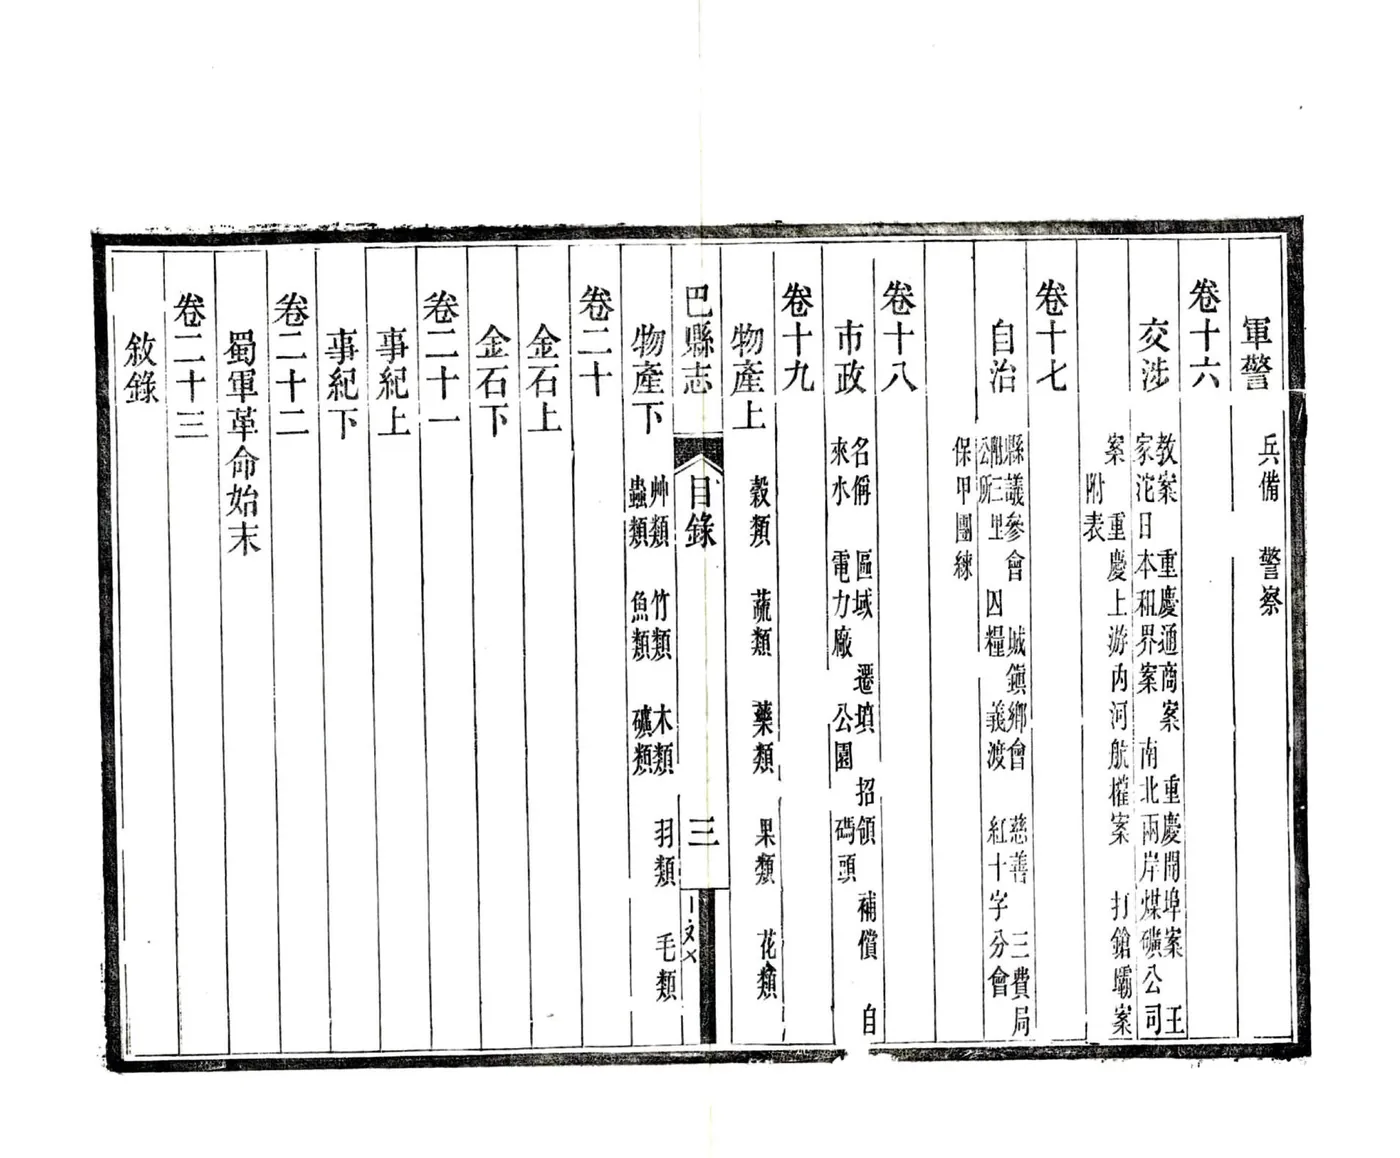 軍警 兵備 警察
卷十六
交涉 教案 重慶通商案 重慶開埠案 王
家沱日本租界案 南北兩岸煤礦公司
案 重慶上游內河航權案 打鎗壩案
附表
卷十七
自治 縣議參會 城鎮鄉會 慈善 三費局
附三里 囚糧 義渡 紅十字分會
公所
保甲團練
卷十八
市政 名偁 區域 遷墳 招領 補償 自
來水 電力廠 公園 碼頭
卷十九
物產上 穀類 蔬類 藥類 果類 花類
巴縣志 目錄 三
物產下 艸類 竹類 木類 羽類 毛類
蟲類 魚類 礦類
卷二十
金石上
金石下
卷二十一
事紀上
事紀下
卷二十二
蜀軍革命始末
卷二十三
敘錄